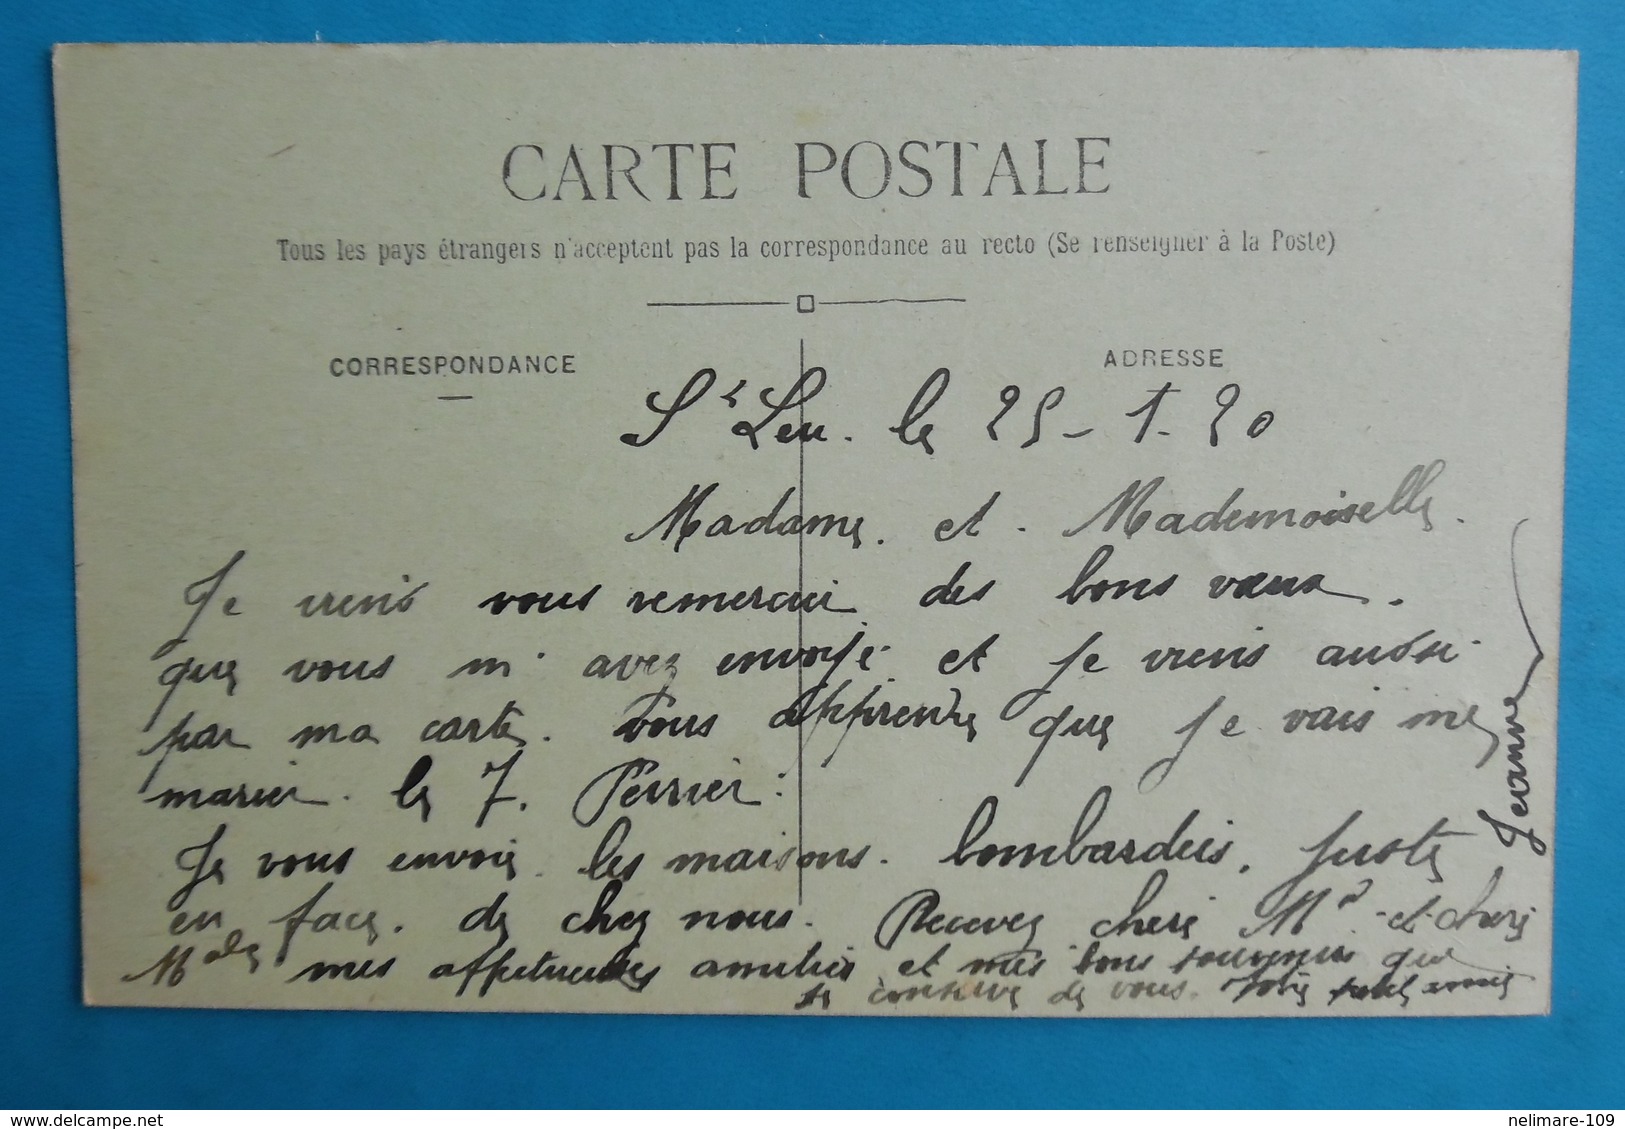 CARTE POSTALE
Tous les pays étrangers n'acceptent pas la correspondance au recto (Se renseigner à la Poste)
CORRESPONDANCE
ADRESSE
St Leu. le 25-1-20
Madame. et. Mademoiselle.
Je viens vous remercier des bons vœux.
que vous m'avez envoyé et je viens aussi
par ma carte. vous apprendre que je vais me
marier. le 7. Février.
Je vous envoie les maisons. bombardées, juste
en face. de chez nous. Recevez chère Md et chère
Madelle mes affectueuses amitiés et mes bons souvenirs que
je conserve de vous. Votre amie
Jeanne
nelimare-109